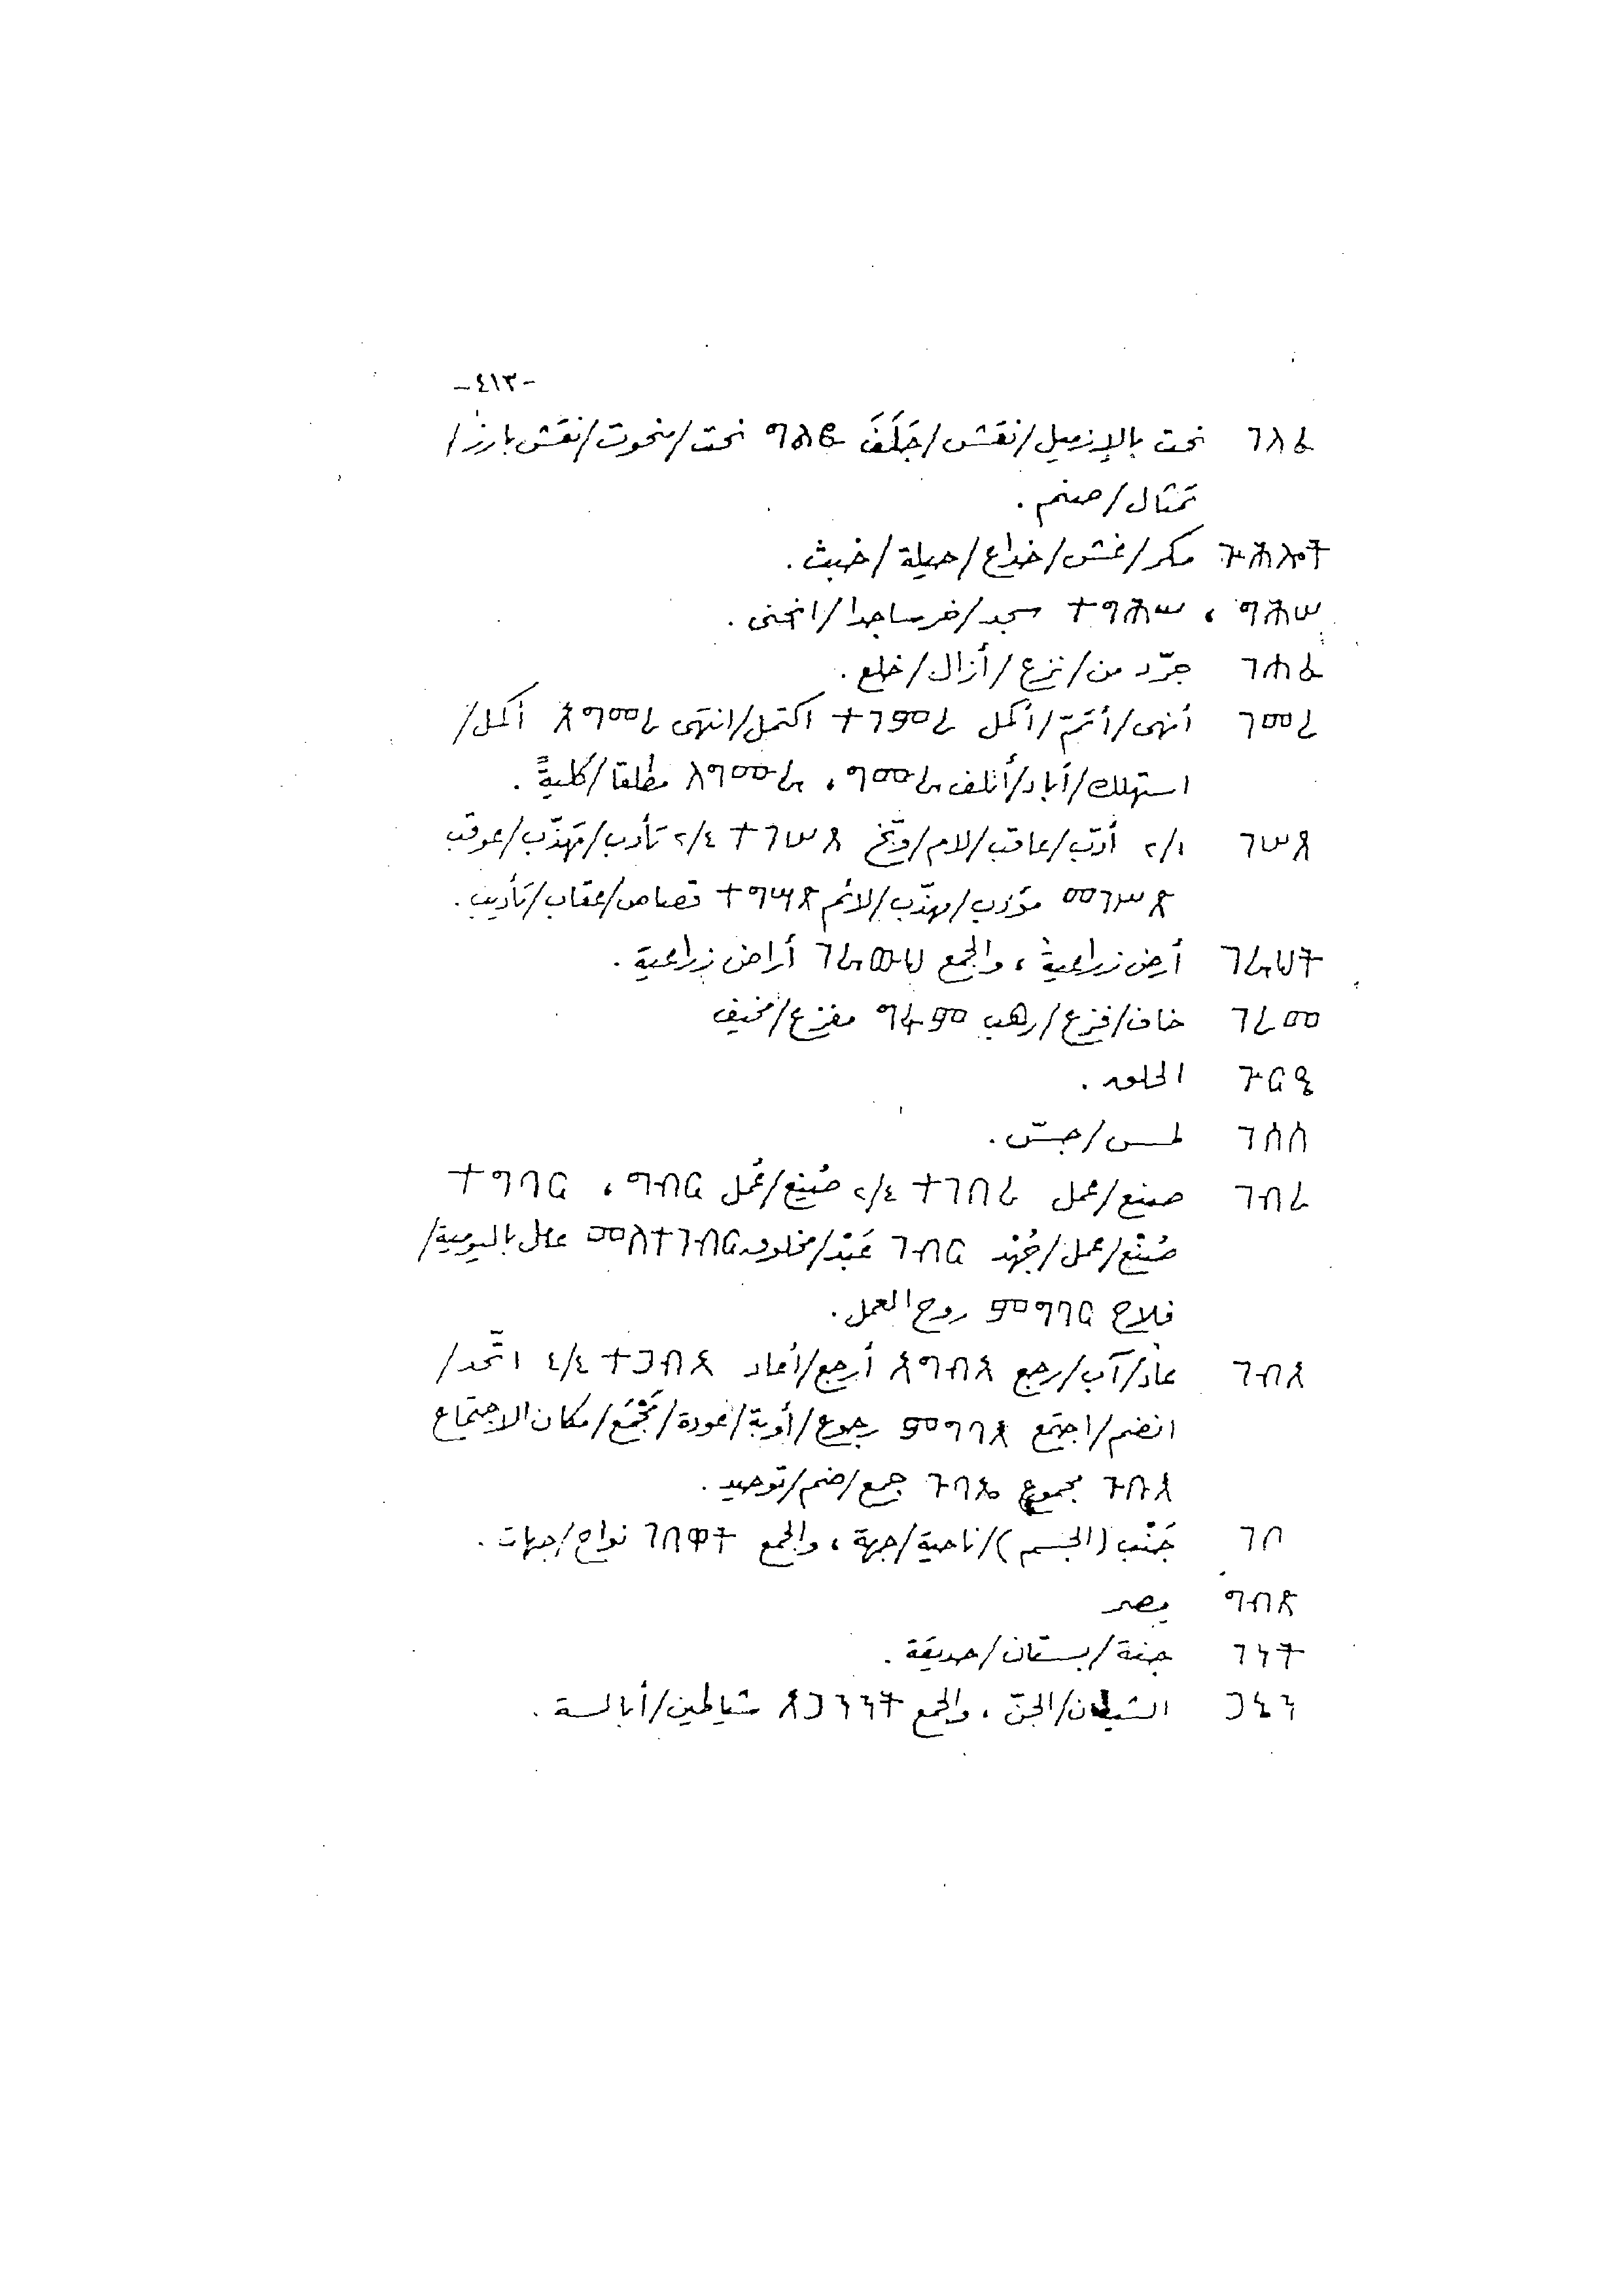 -٤١٣-
ገለፈ نحت بالإزميل/نقش/جَلَفَ ግልፎ نحت/منحوت/نقش بارز/
تمثال/صنم .
ጕሕሉት مكر/غش/خداع/حيلة/خبث .
سجد/خر ساجدا/انحنى .
جرّد من/نزع/أزال/خلع .
ገመረ أنهى/أتمّ/أكمل ተገምረ اكتمل/انتهى አግመረ أكمل/
استهلك/أباد/أتلف ግሙረ ، ለግሙራ مطلقا/كليةً .
ገሠጸ ٢/١ أدّب/عاقب/لام/وبّخ ተገሠጸ ٢/٤ تأدب/تهذّب/عوقب
መገሥጽ مؤدب/مهذّب/لائم ተግሣጽ قصاص/عقاب/تأديب .
ገራህት أرض زراعية ، والجمع ገራውህ أراض زراعية .
ገረመ خاف/فزع/رهب ግሩም مفزع/مخيف
ጕርዔ الحلق .
ገሰሰ لمس/جسّ .
ገብረ صنع/عمل ተገብረ ٢/٤ صُنِع/عُمل ግብር ، ተግባር
صُنْع/عمل/جُهْد ገብር عَبْد/مخلوق عامل باليومية/
فلاح ምግባር روح العمل .
ገብአ عاد/آب/رجع አግብአ أرجع/أعاد ተጋብአ ٤/٤ اتّحد/
انضم/اجتمع ምግባእ رجوع/أوبة/عودة/مَجْمَع/مكان الاجتماع
ጉቡእ مجموع ጉባኤ جمع/ضم/توحيد .
ገቦ جَنْب (الجسم)/ناحية/جهة ، والجمع ገበዋት نواح/جهات .
ግብጽ مصر
ገነት جنة/بستان/حديقة .
ጋኔን الشيطان/الجنّ ، والجمع አጋንንት شياطين/أبالسة .